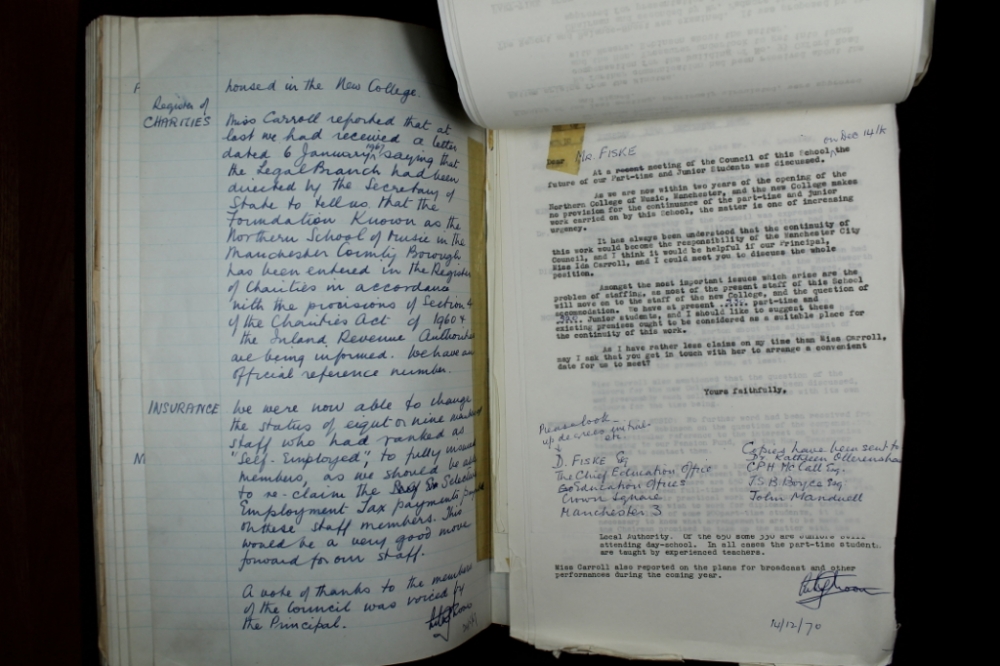 housed in the New College.
Register of
CHARITIES
Miss Carroll reported that at
last we had received a letter
dated 6 January 1967 saying that
the Legal Branch had been
directed by the Secretary of
State to tell us that the
Foundation Known as the
Northern School of Music in the
Manchester County Borough
has been entered in the Register
of Charities in accordance
with the provisions of Section 4
of the Charities Act of 1960 &
the Inland Revenue Authorities
are being informed. We have an
official reference number.
INSURANCE
We were now able to change
the status of eight or nine members of
staff who had ranked as
"Self-Employed", to fully insured
members, as we should be able
to re-claim the Selective
Employment Tax payments
on these staff members. This
would be a very good move
forward for our staff.
A vote of thanks to the members
of the Council was voiced by
the Principal.
Dear MR. FISKE
on Dec 14th
At a recent meeting of the Council of this School, the
future of our Part-time and Junior Students was discussed.
As we are now within two years of the opening of the
Northern College of Music, Manchester, and the new College makes
no provision for the continuance of the part-time and junior
work carried on by this School, the matter is one of increasing
urgency.
It has always been understood that the continuity of
this work would become the responsibility of the Manchester City
Council, and I think it would be helpful if our Principal,
Miss Ida Carroll, and I could meet you to discuss the whole
position.
Amongst the most important issues which arise are the
problem of staffing, as most of the present staff of this School
will move on to the staff of the new College, and the question of
accommodation. We have at present part-time and
Junior students, and I should like to suggest these
existing premises ought to be considered as a suitable place for
the continuity of this work.
As I have rather less claim on my time than Miss Carroll,
may I ask that you get in touch with her to arrange a convenient
date for us to meet?
Yours faithfully,
Please look
up degrees initials
etc
D. FISKE Esq
The Chief Education Office
Education Offices
Crown Square
Manchester 3
Copies have been sent to
Dr Kathleen Ollerenshaw
CPH McCall Esq.
J S B Boyce Esq
John Manduell
Local Authority. Of the 650 some 330 are Juniors still
attending day-school. In all cases the part-time students
are taught by experienced teachers.
Miss Carroll also reported on the plans for broadcast and other
performances during the coming year.
14/12/70